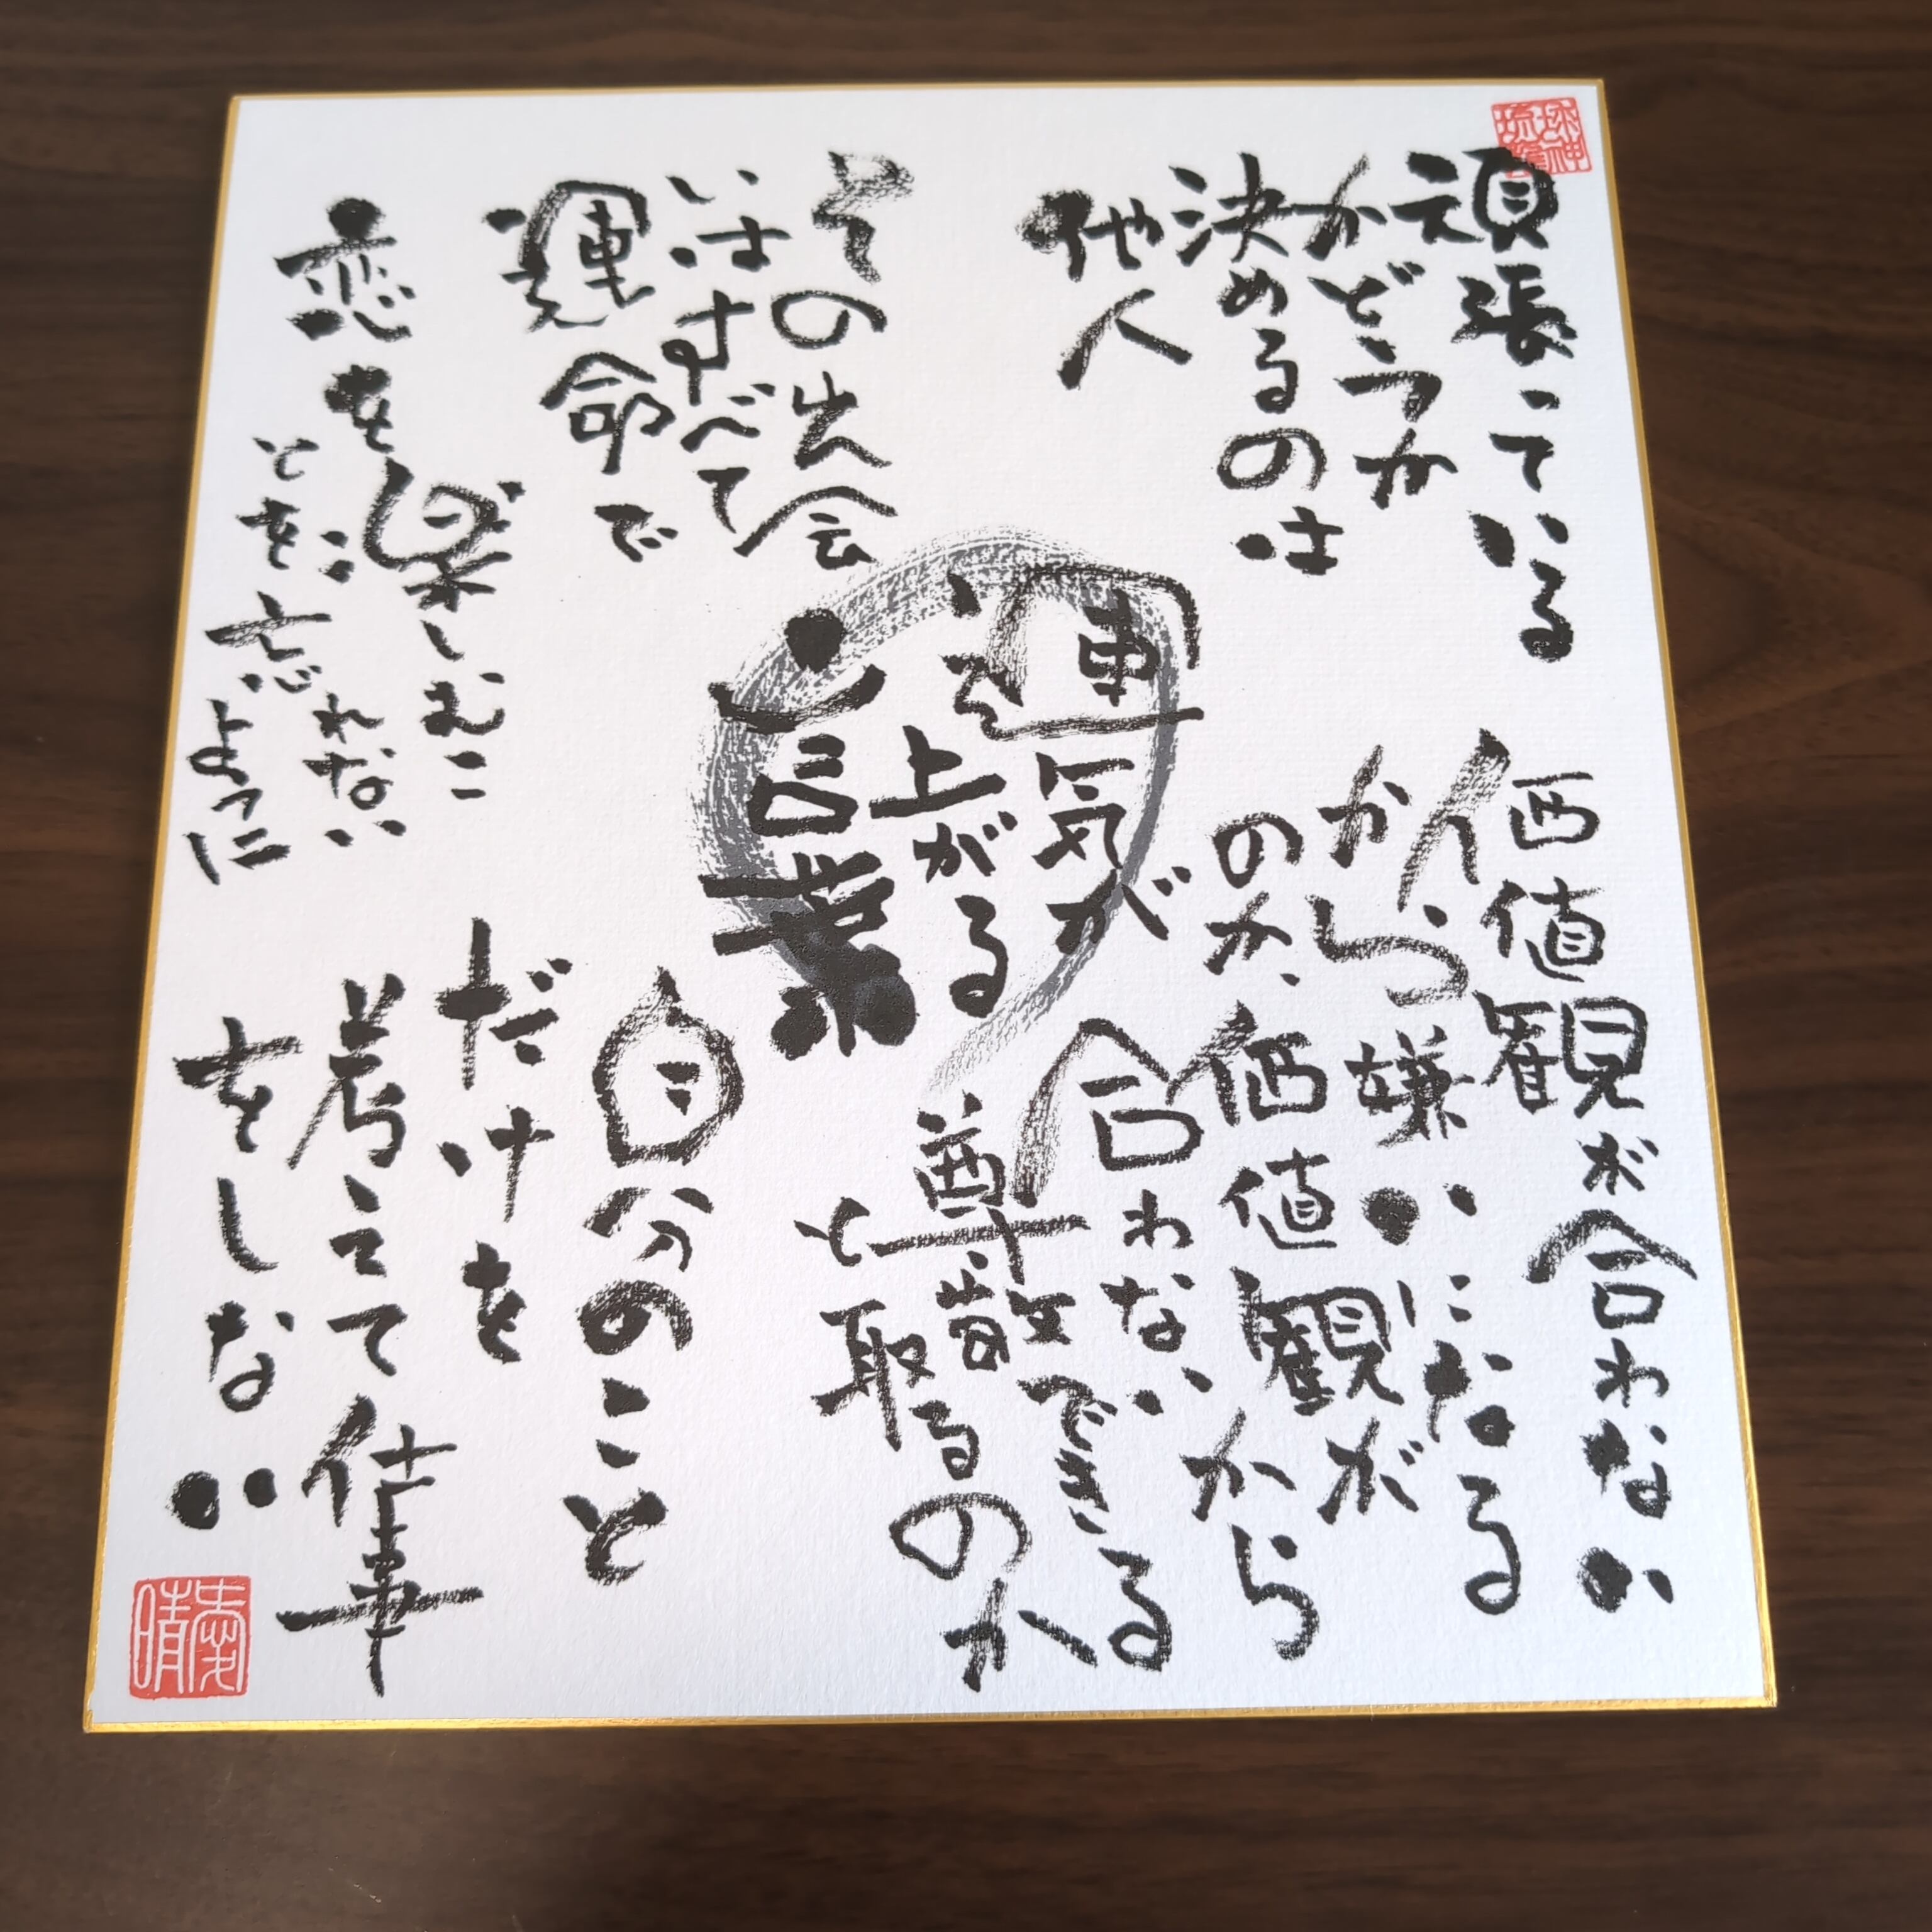 頑張っている
かどうか
決めるのは
他人
価値観が合わない
から嫌いになる
のか、価値観が
合わないから
尊敬できる
と取るのか
運気が
上がる
言葉
その出会
いはすべて
運命で
恋をし
楽しむこ
とを忘れない
ように
自分のこと
だけを
考えて仕事
をしない